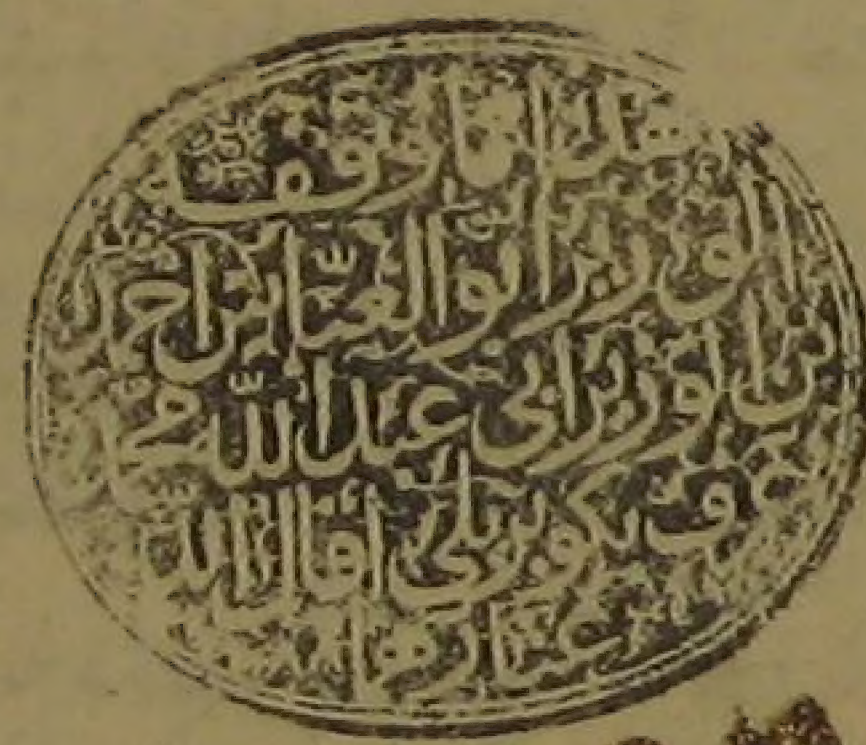 هذا مما وقفه
الوزير ابو العباس احمد
بن الوزير ابي عبد الله محمد
عرف بكوبريلي أقال الله
عثارهما